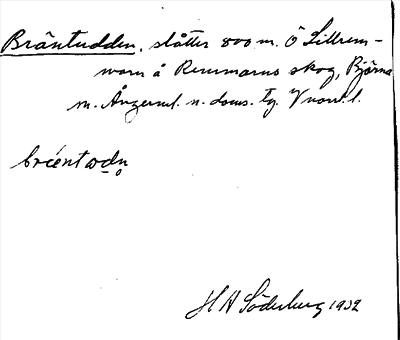 Bräntudden, slåtter 800 m. Ö Lillrem-
marn å Remmarns skog, Björna
sn. Ångerml. n. doms. tg. Vnorrl. l.
bréntodn
H A Söderberg 1932